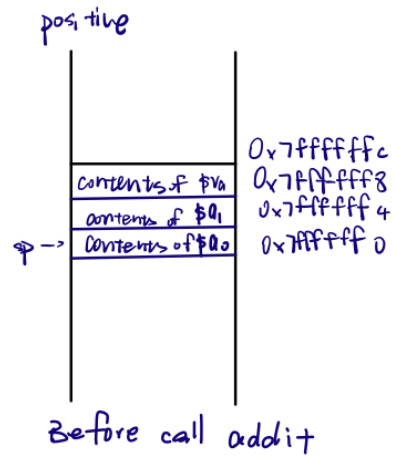 positive
0x7ffffffc
contents of $ra 0x7ffffff8
contents of $a1 0x7ffffff4
$p -> contents of $a0 0x7ffffff0
Before call addit